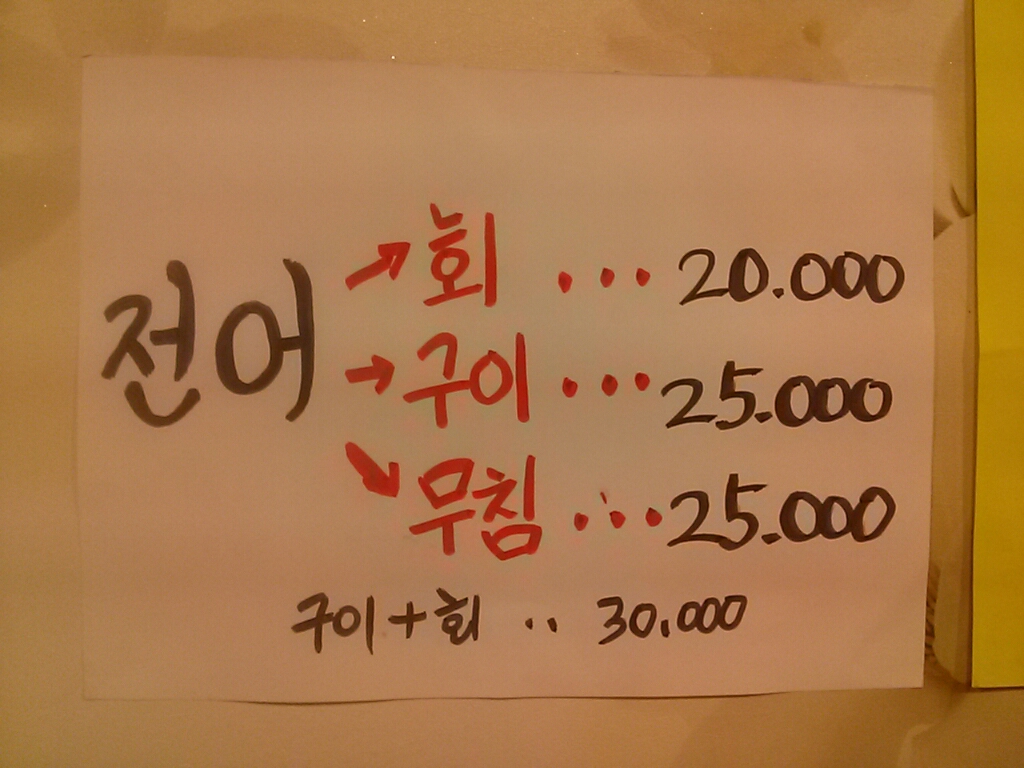 전어 → 회 ... 20.000
→ 구이 ... 25.000
↘ 무침 ... 25.000
구이+회 .. 30.000